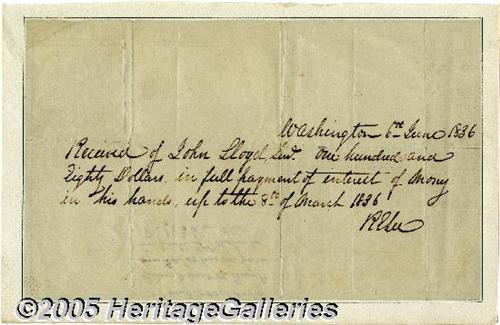 Washington 6th June 1836
Received of John Lloyd, One hundred and
Eighty Dollars in full payment of interest of Money
in his hands, up to the 8th of March 1836
RELee
©2005 HeritageGalleries